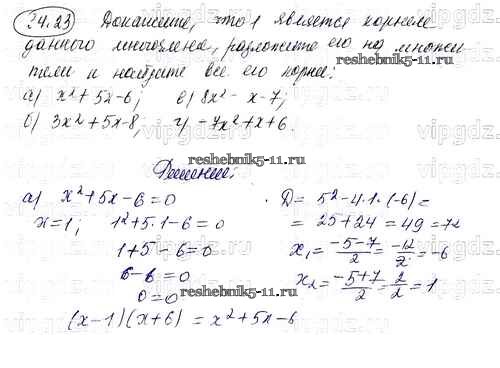 34.23 Докажите, что 1 является корнем
данного многочлена, разложите его на множи
тели и найдите все его корни:
а) x²+5x-6; в) 8x²-x-7;
б) 3x²+5x-8; г) -7x²+x+6.
reshebnik5-11.ru
vipgdz
Решение:
а) x²+5x-6=0
x=1; 1²+5·1-6=0
1+5-6=0
6-6=0
0=0
(x-1)(x+6)=x²+5x-6
D=5²-4·1·(-6)=
=25+24=49=7²
x₁=(-5-7)/2=-12/2=-6
x₂=(-5+7)/2=2/2=1
reshebnik5-11.ru
reshebnik5-11.ru